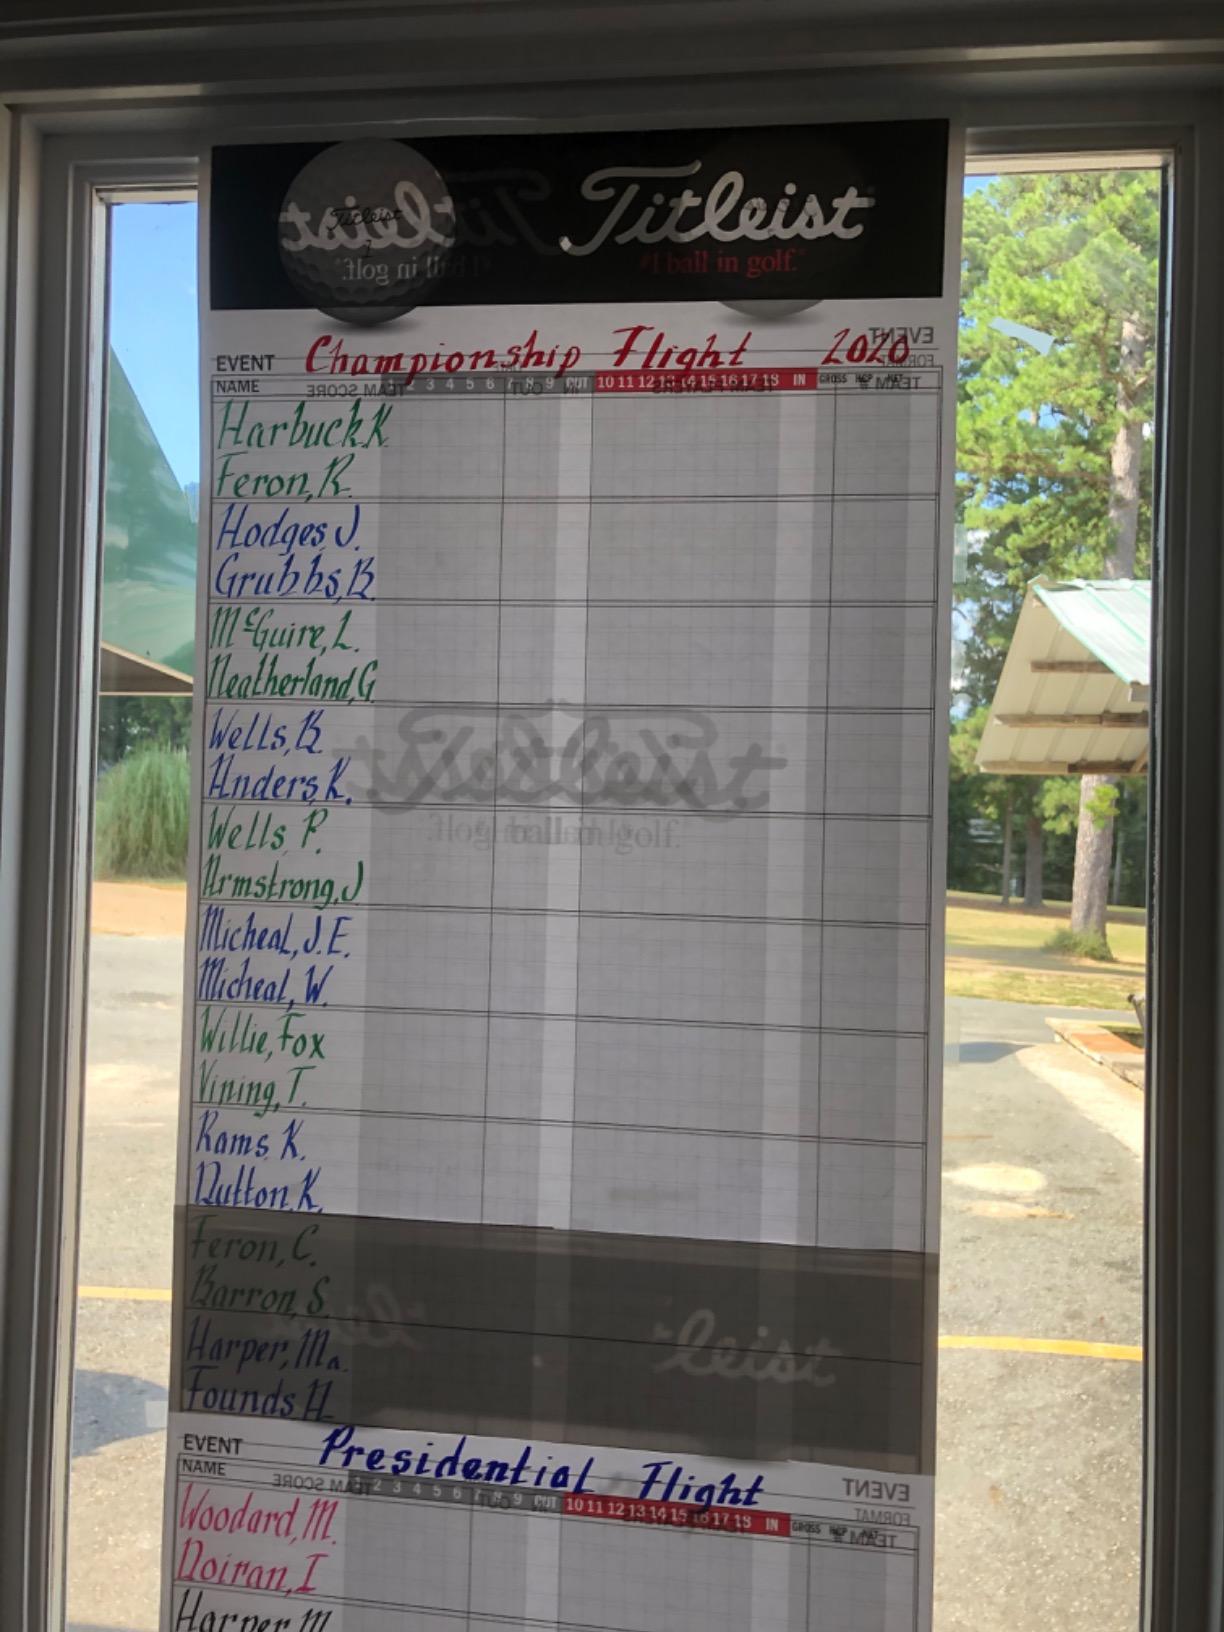 Titleist
#1 ball in golf.
EVENT Championship Flight 2020
NAME 2 3 4 5 6 7 8 9 OUT 10 11 12 13 14 15 16 17 18 IN GROSS HCP NET
Harbuck K
Feron, R.
Hodges J.
Grubbs, B.
McGuire, L.
Neatherland, G
Wells, B.
Anders, K.
Wells, P.
Armstrong, J
Micheal, J.E.
Micheal, W.
Willie, Fox
Vining, T.
Rams, K.
Dutton, K.
Feron, C.
Barron, S.
Harper, Ma.
Founds, A.
EVENT Presidential Flight
NAME 2 3 4 5 6 7 8 9 OUT 10 11 12 13 14 15 16 17 18 IN GROSS HCP NET
Woodard, M.
Doiran, I
Harper, M